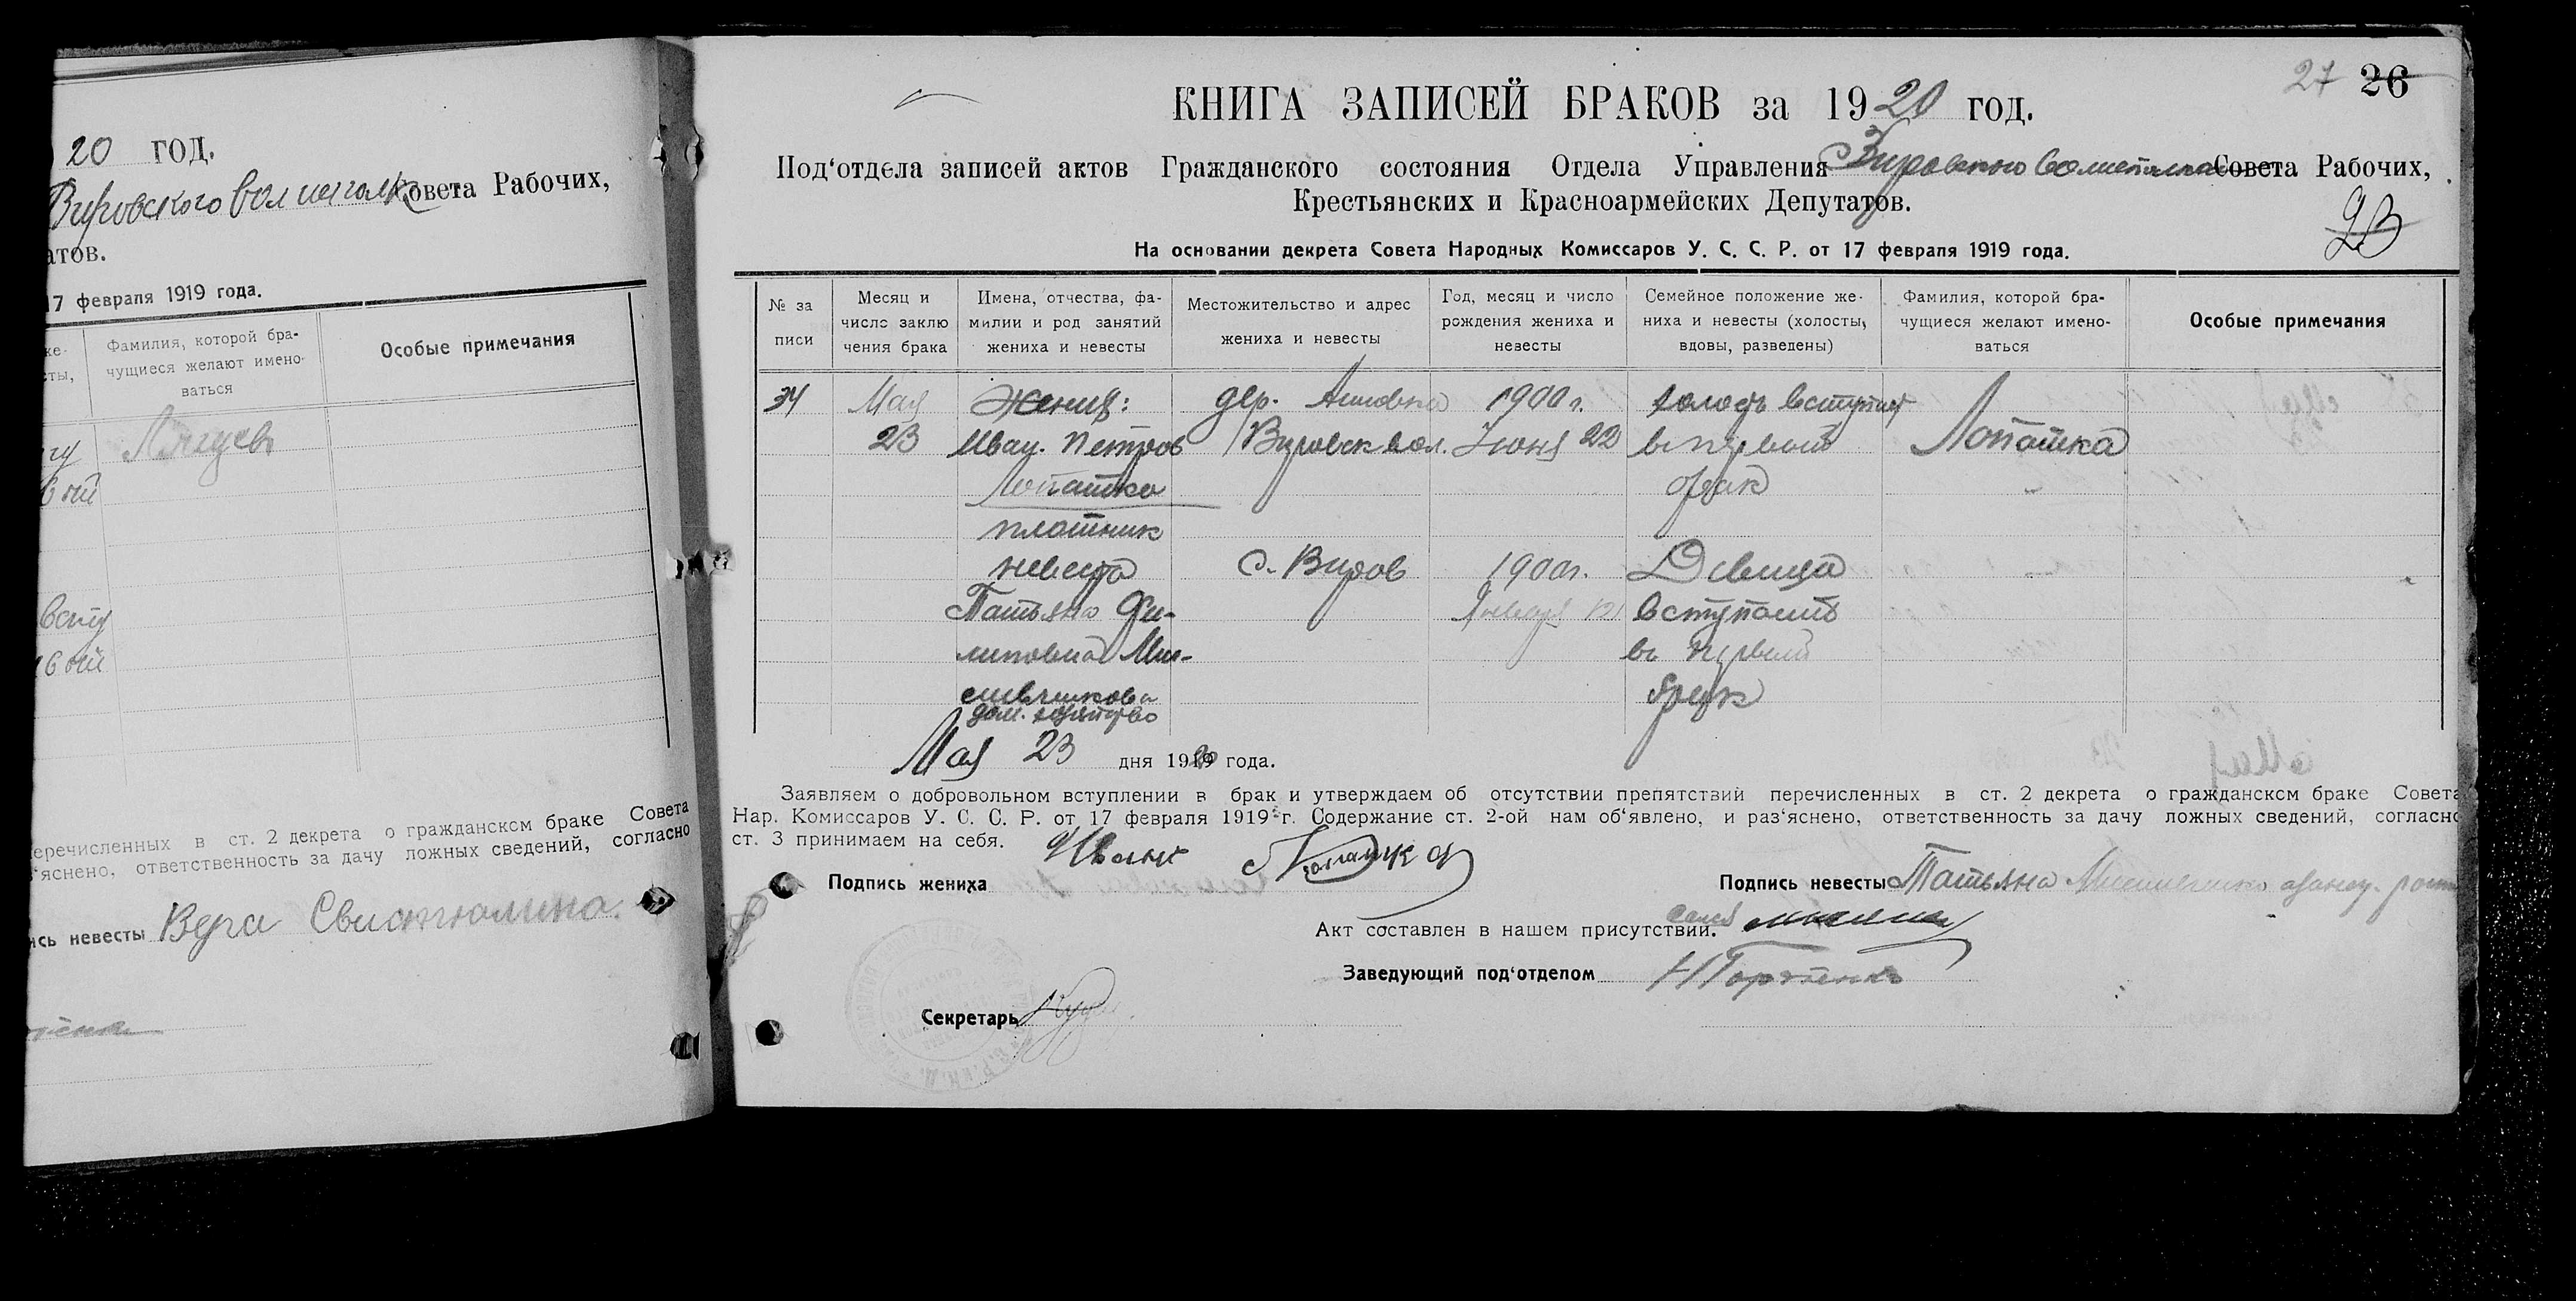 20 год.
Вировского волисполк Совета Рабочих,
атов.
17 февраля 1919 года.
Фамилия, которой бра-
чущиеся желают имено-
ваться
Особые примечания
вый
всту
вый
перечисленных в ст. 2 декрета о гражданском браке Совета
з'яснено, ответственность за дачу ложных сведений, согласно
ись невесты Вера
27 26
КНИГА ЗАПИСЕЙ БРАКОВ за 1920 год.
Под'отдела записей актов Гражданского состояния Отдела Управления Вировского Совета Рабочих,
Крестьянских и Красноармейских Депутатов.
На основании декрета Совета Народных Комиссаров У. С. С. Р. от 17 февраля 1919 года.
№ за
писи
Месяц и
число заклю
чения брака
Имена, отчества, фа-
милии и род занятий
жениха и невесты
Местожительство и адрес
жениха и невесты
Год, месяц и число
рождения жениха и
невесты
Семейное положение же-
ниха и невесты (холосты,
вдовы, разведены)
Фамилия, которой бра-
чущиеся желают имено-
ваться
Особые примечания
34 Мая Жених: дер. 1900 г. холост вступает
23 Иван Петров Вировск вол. Июня 22 в первый Лопатка
Лопатка брак
плотник
невеста с. Виров 1900 г. Девица
Татьяна Фи- Января 12 вступает
липовна в первый
брак
Мая 23 дня 1920 года.
Заявляем о добровольном вступлении в брак и утверждаем об отсутствии препятствий перечисленных в ст. 2 декрета о гражданском браке Совета
Нар. Комиссаров У. С. С. Р. от 17 февраля 1919 г. Содержание ст. 2-ой нам об'явлено, и раз'яснено, ответственность за дачу ложных сведений, согласно
ст. 3 принимаем на себя.
Подпись жениха Иван Лопатка
Подпись невесты Татьяна
Акт составлен в нашем присутствии.
Заведующий под'отделом
Секретарь